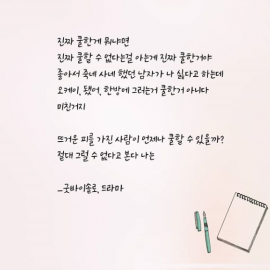 진짜 쿨한게 뭐냐면
진짜 쿨할 수 없다는걸 아는게 진짜 쿨한거야
좋아서 죽네 사네 했던 남자가 나 싫다고 하는데
오케이, 됐어, 한방에 그러는거 쿨한거 아니다
미친거지
뜨거운 피를 가진 사람이 언제나 쿨할 수 있을까?
절대 그럴 수 없다고 본다 나는
-굿바이솔로, 드라마